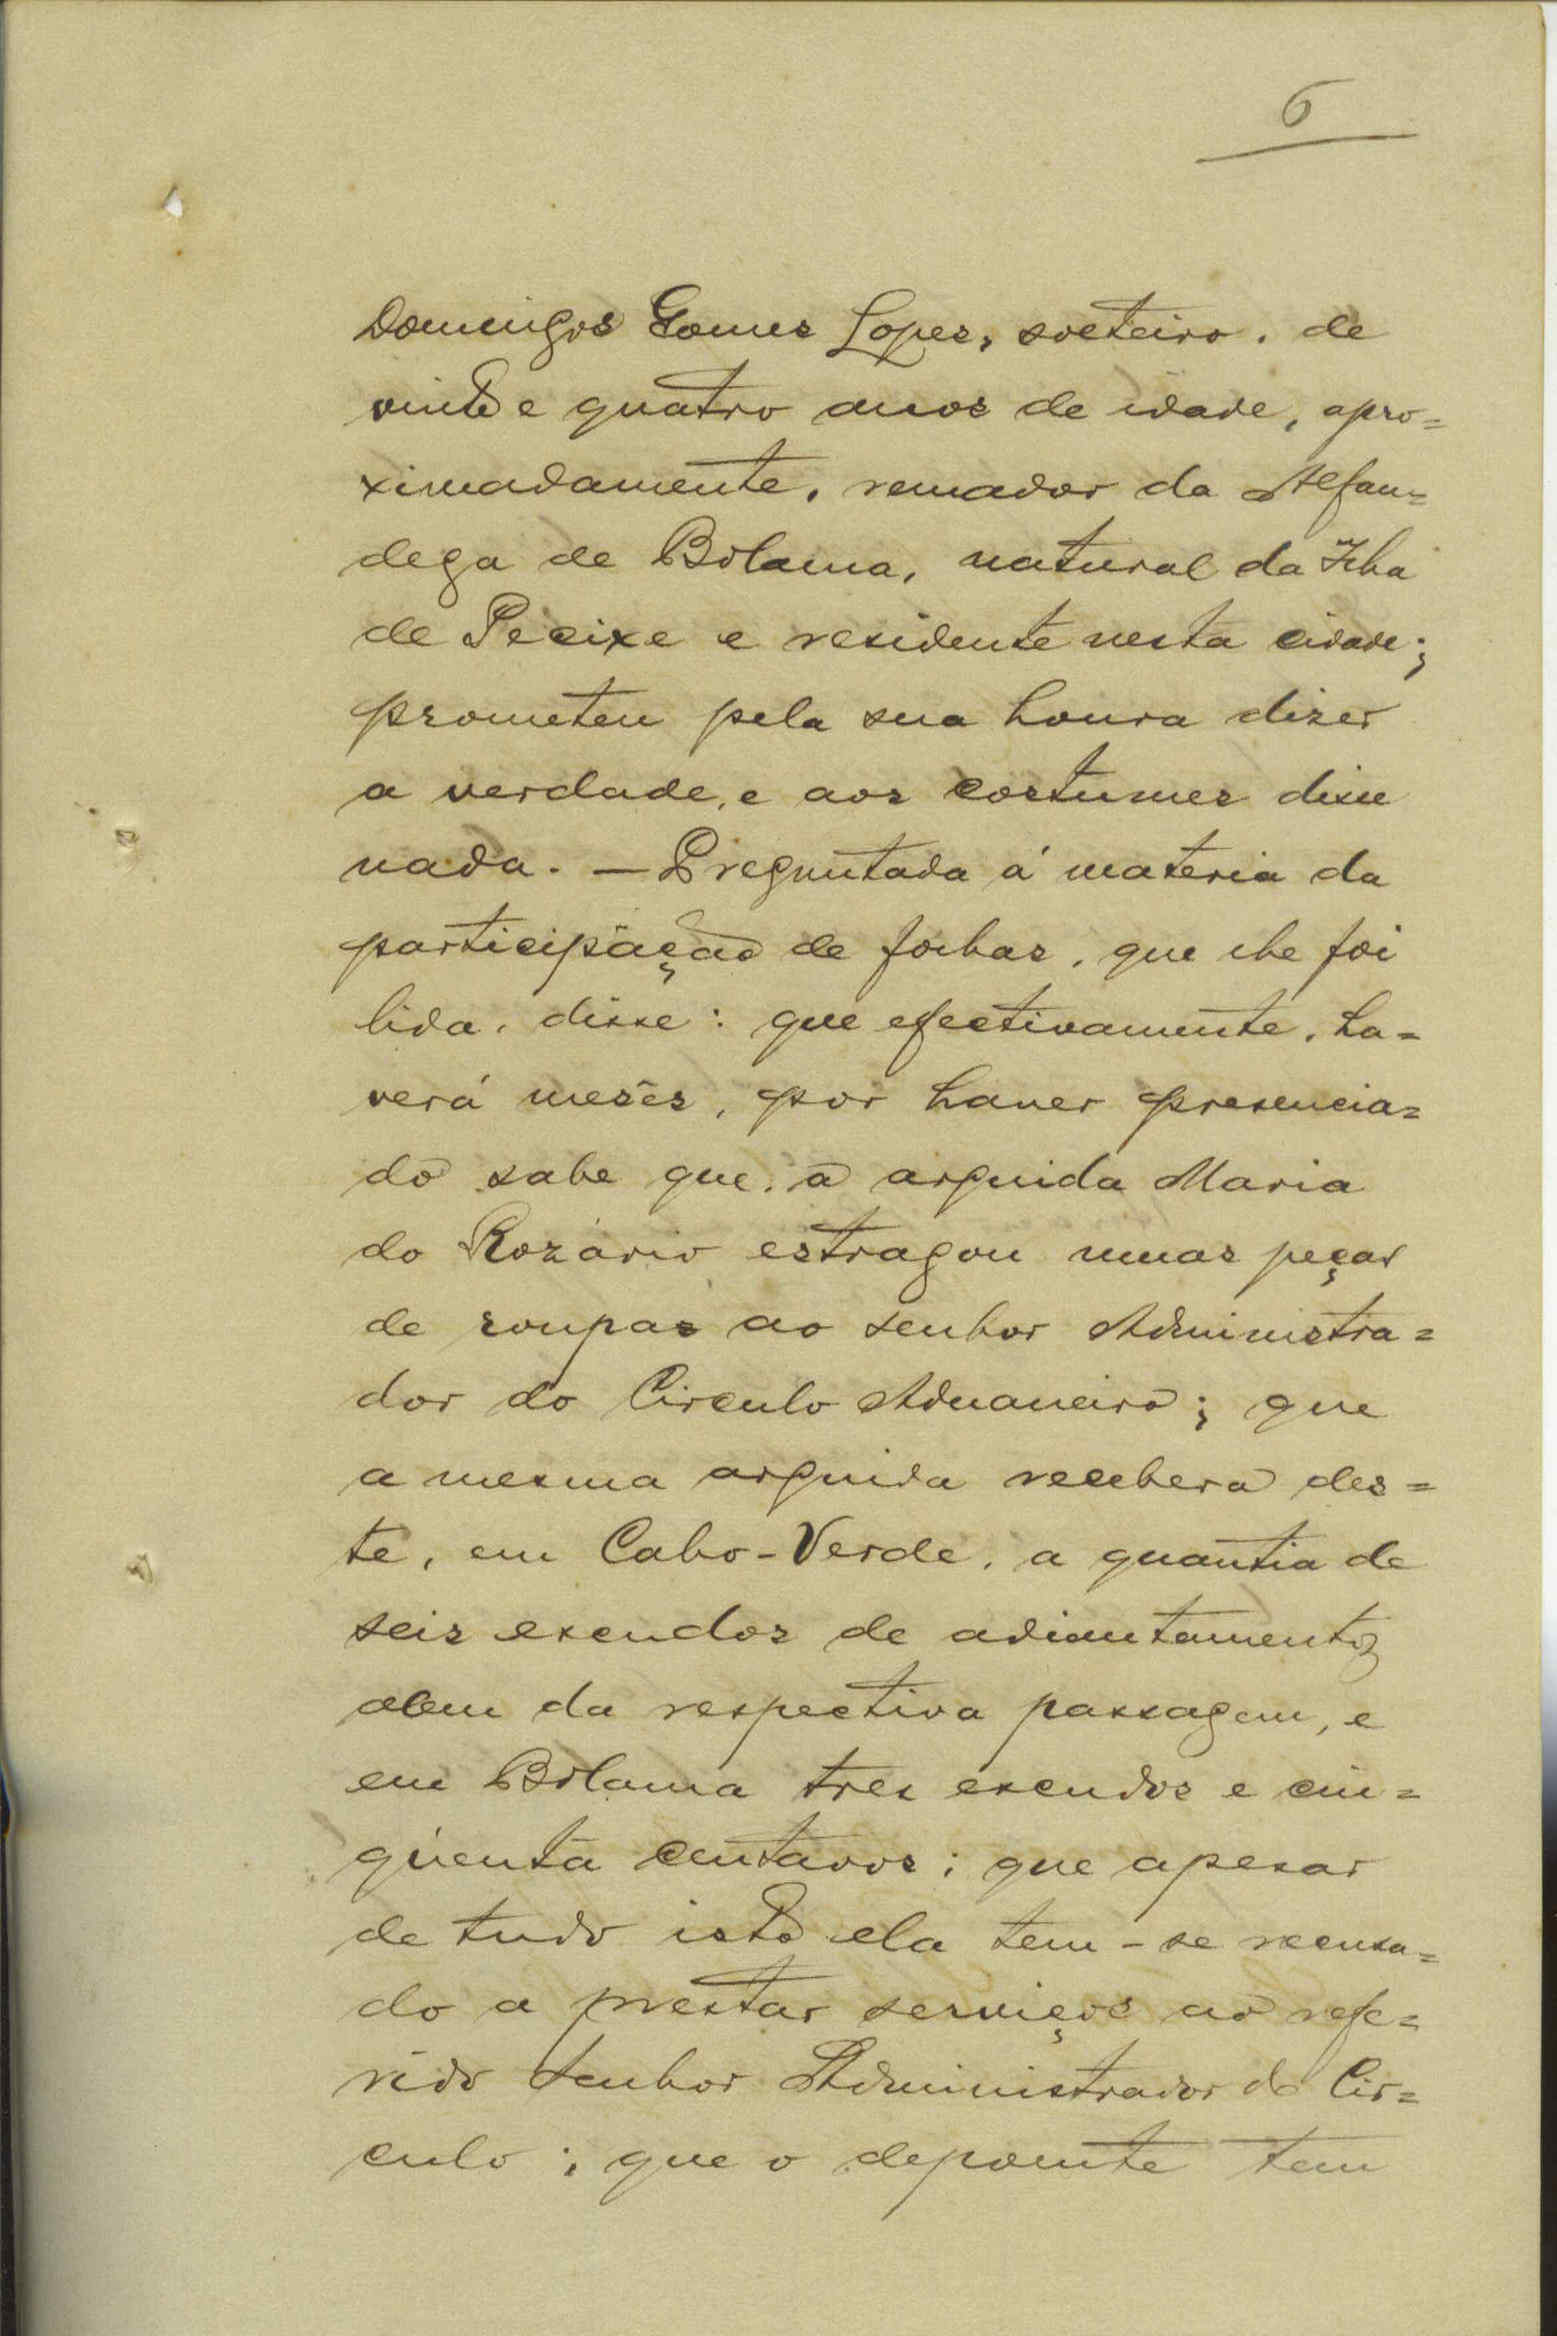 6
Domingos Gomes Lopes, solteiro, de
vinte e quatro anos de idade, apro=
ximadamente, remador da Alfan=
dega de Bolama, natural da Ilha
de Pecixe e residente nesta cidade;
prometeu pela sua honra dizer
a verdade, e aos costumes disse
nada. — Preguntada á materia da
participação de folhas, que lhe foi
lida, disse: que efectivamente, ha=
verá mesês, por haver presencia=
do sabe que, a arguida Maria
do Rozário estragou umas peças
de roupas ao senhor Administra=
dor do Circulo Aduaneiro; que
a mesma arguida recebera des=
te, em Cabo-Verde, a quantia de
seis escudos de adiantamento,
alem da respectiva passagem, e
em Bolama tres escudos e cin=
qùenta centavos; que apesar
de tudo isto ela tem-se recusa=
do a prestar serviços ao refe=
rido senhor Administrador do Cir=
culo; que o depoente tem